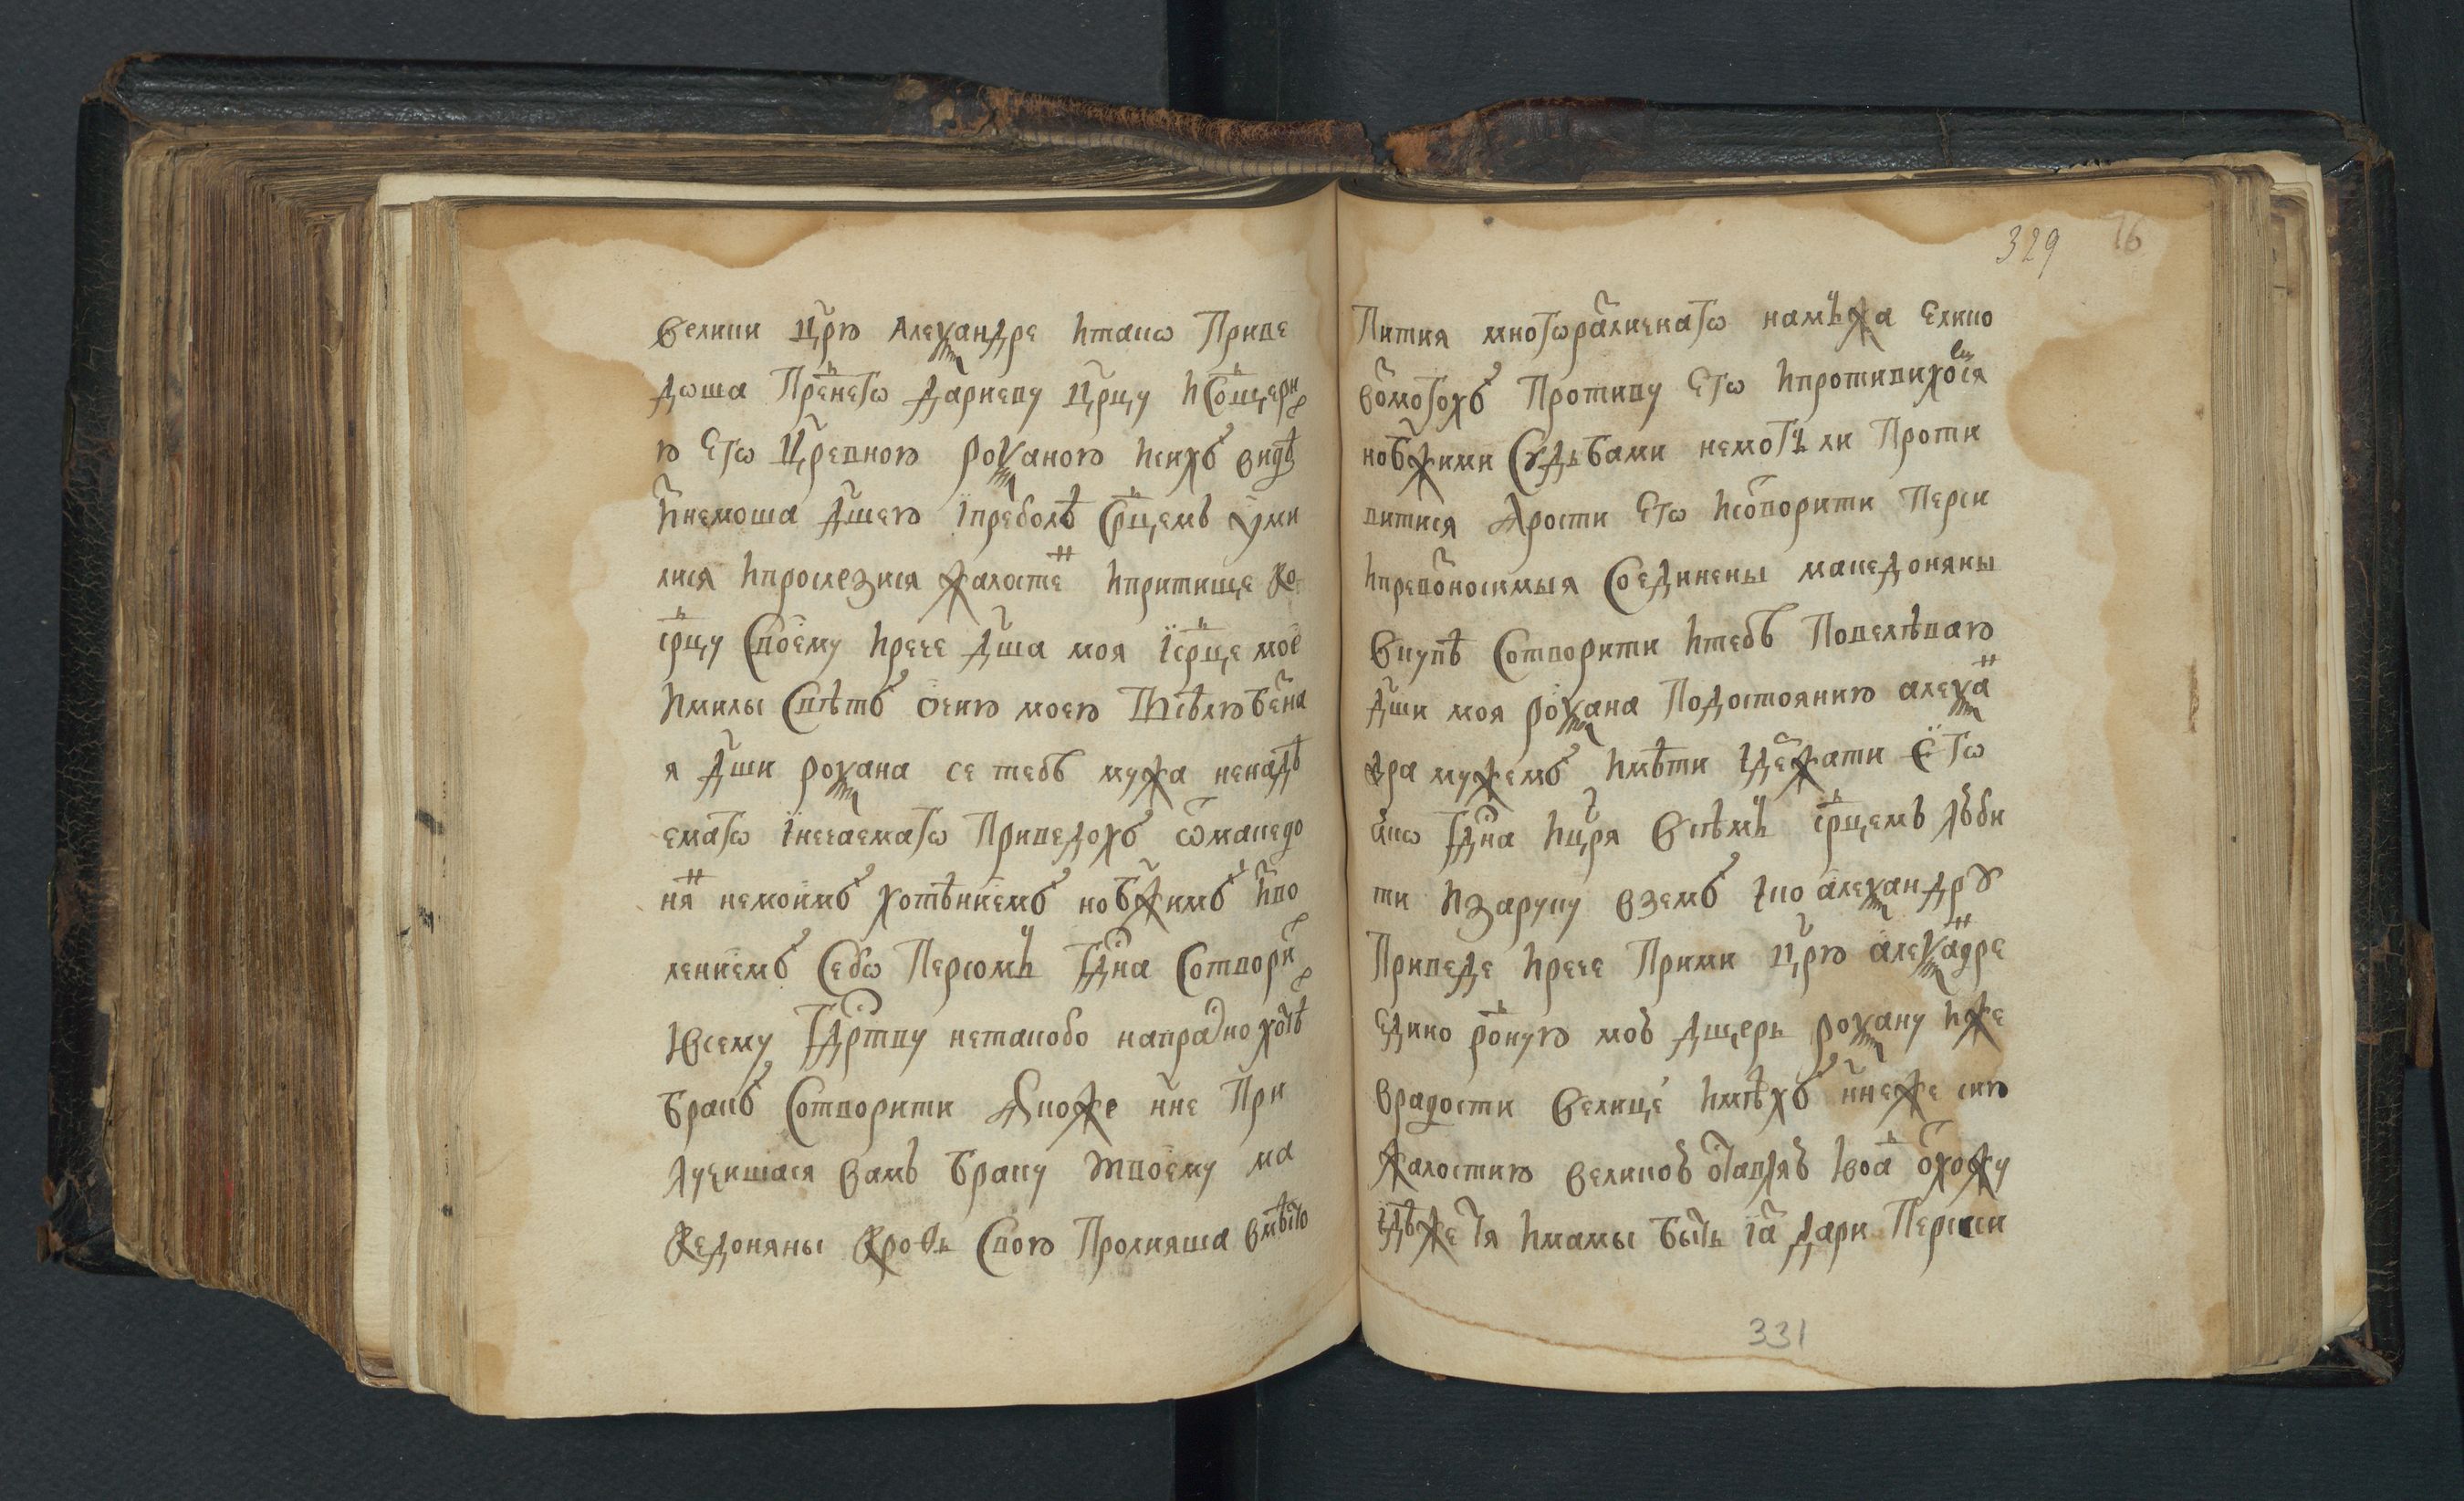 велики црю Алеѯандре итако Приве
доша Пренего Дариеву црцу иСощери
ю Его Цревною роѯаною иихъ видѣ
изнемоша Дшею Іпреболѣ Срцемъ уми
лися ипрослезися жалостне ипритище ко
срцу Своему ирече Дша моя Їсрце мое
имилы Свѣтъ очию моею Всѣлюбена
я Дши роѯана се тебѣ мужа ненадѣ
емаго Їнечаемаго Приведохъ ѿмакедо
ния немоимъ хотѣниемъ нобжимъ изво
лениемъ Себо Персомъ Гдна Сотвори
Ївсему Гдрству нетакобо напрасно хотѣ
бракъ Сотворити Якоже нне При
лучишася вамъ браку твоему ма
кедоняны кровь Свою Пролияша вмѣсто
329 76
Пития многоразличнаго намъжа Елико
возмогохъ Противу Его ипротивихомся
нобжими Судьбами немогъ ли Проти
витися Ярости Его исотворити Перси
ипревозносимыя Соединены македоняны
вкупѣ Сотворити итебѣ Повелѣваю
Дши моя роѯана Подостоянию алеѯа
дра мужемъ имѣти Їдержати Его
яко Гдна ицря всѣмъ срцемъ люби
ти изаруку вземъ Їко алеѯандрꙋ
Приведе ирече Прими црю алеѯадре
едино рону́ю моꙋ дщерь роѯану иже
врадости велице имѣхъ ннеже сию
жалостию великоꙋ оставляꙋ отхожу
идѣже тя имамы быть Дари Перски
331